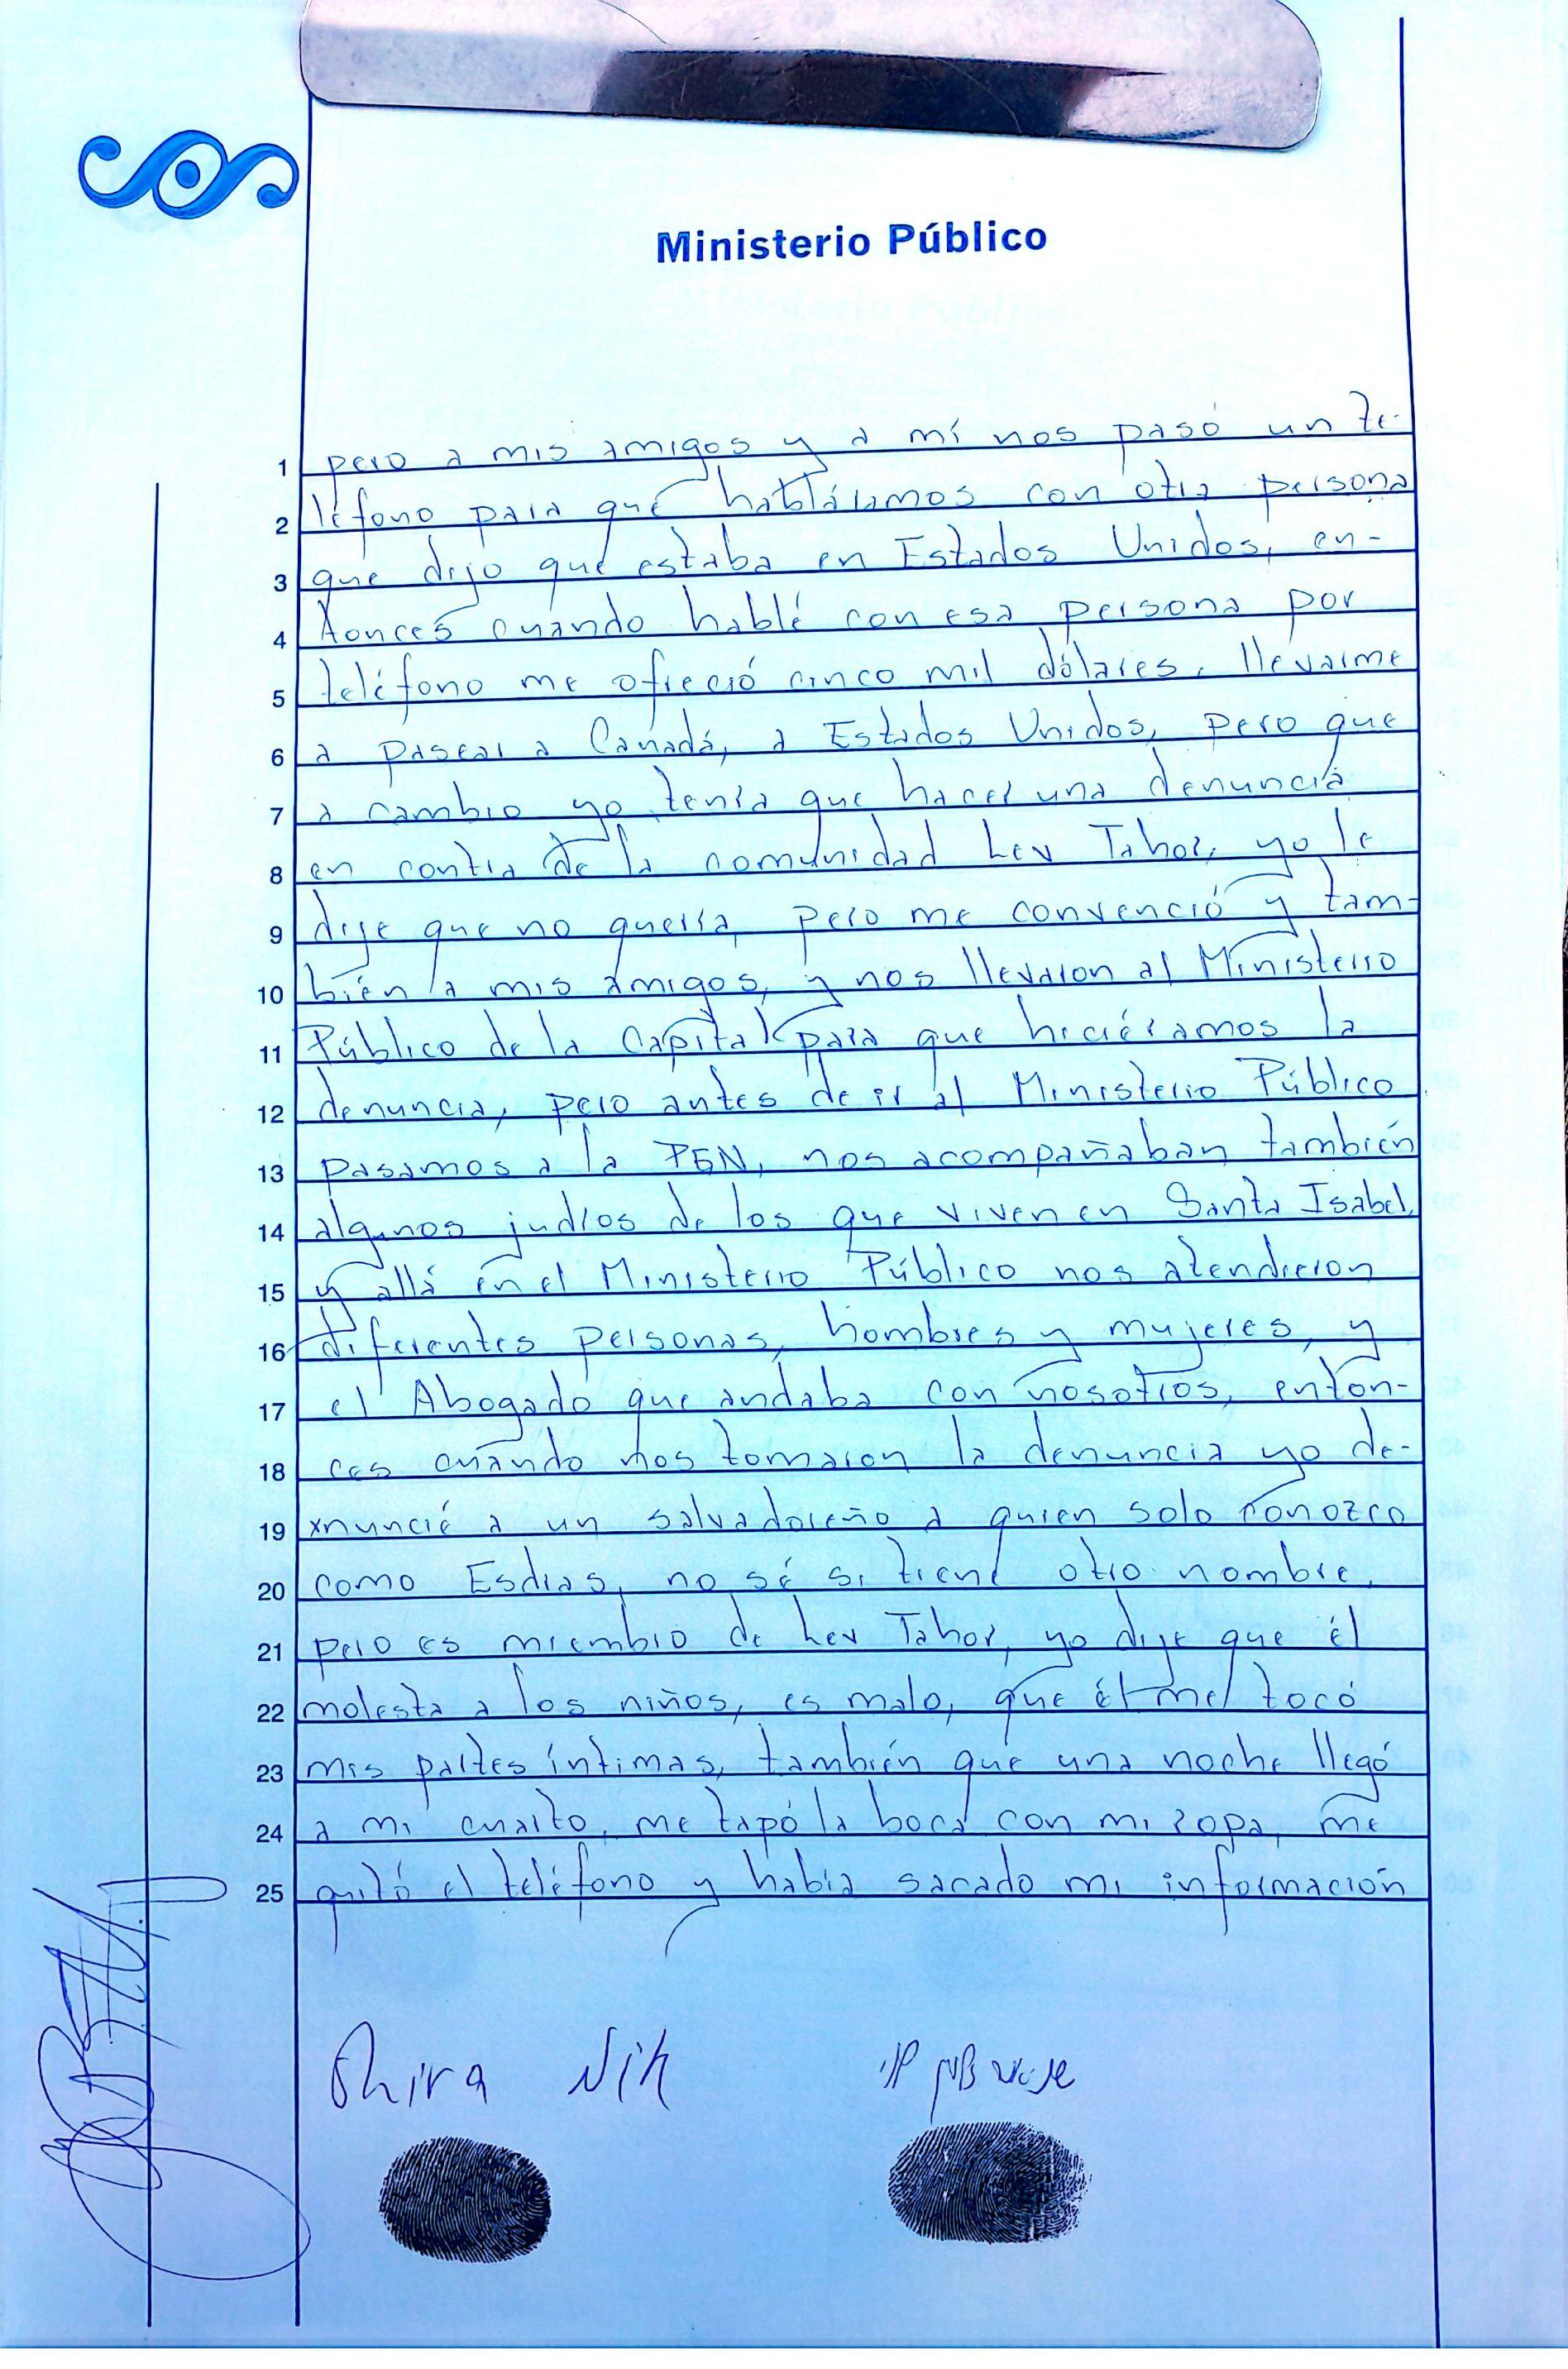 Ministerio Público
1 pero a mis amigos y a mí nos pasó un te-
2 léfono para que habláramos con otra persona
3 que dijo que estaba en Estados Unidos, en-
4 tonces cuando hablé con esa persona por
5 teléfono me ofreció cinco mil dólares, llevarme
6 a pasear a Canadá, a Estados Unidos, pero que
7 a cambio yo tenía que hacer una denuncia
8 en contra de la comunidad Lev Tahor, yo le
9 dije que no quería, pero me convenció y tam-
10 bién a mis amigos, y nos llevaron al Ministerio
11 Público de la Capital para que hiciéramos la
12 denuncia, pero antes de ir al Ministerio Público
13 pasamos a la PGN, nos acompañaban también
14 algunos judíos de los que viven en Santa Isabel,
15 y allá en el Ministerio Público nos atendieron
16 diferentes personas, hombres y mujeres, y
17 el Abogado que andaba con nosotros, enton-
18 ces cuando nos tomaron la denuncia yo de-
19 xnuncié a un salvadoreño a quien solo conozco
20 como Esdras, no sé si tiene otro nombre,
21 pero es miembro de Lev Tahor, yo dije que él
22 molesta a los niños, es malo, que él me tocó
23 mis partes íntimas, también que una noche llegó
24 a mi cuarto, me tapó la boca con mi ropa, me
25 quitó el teléfono y había sacado mi información
Shira